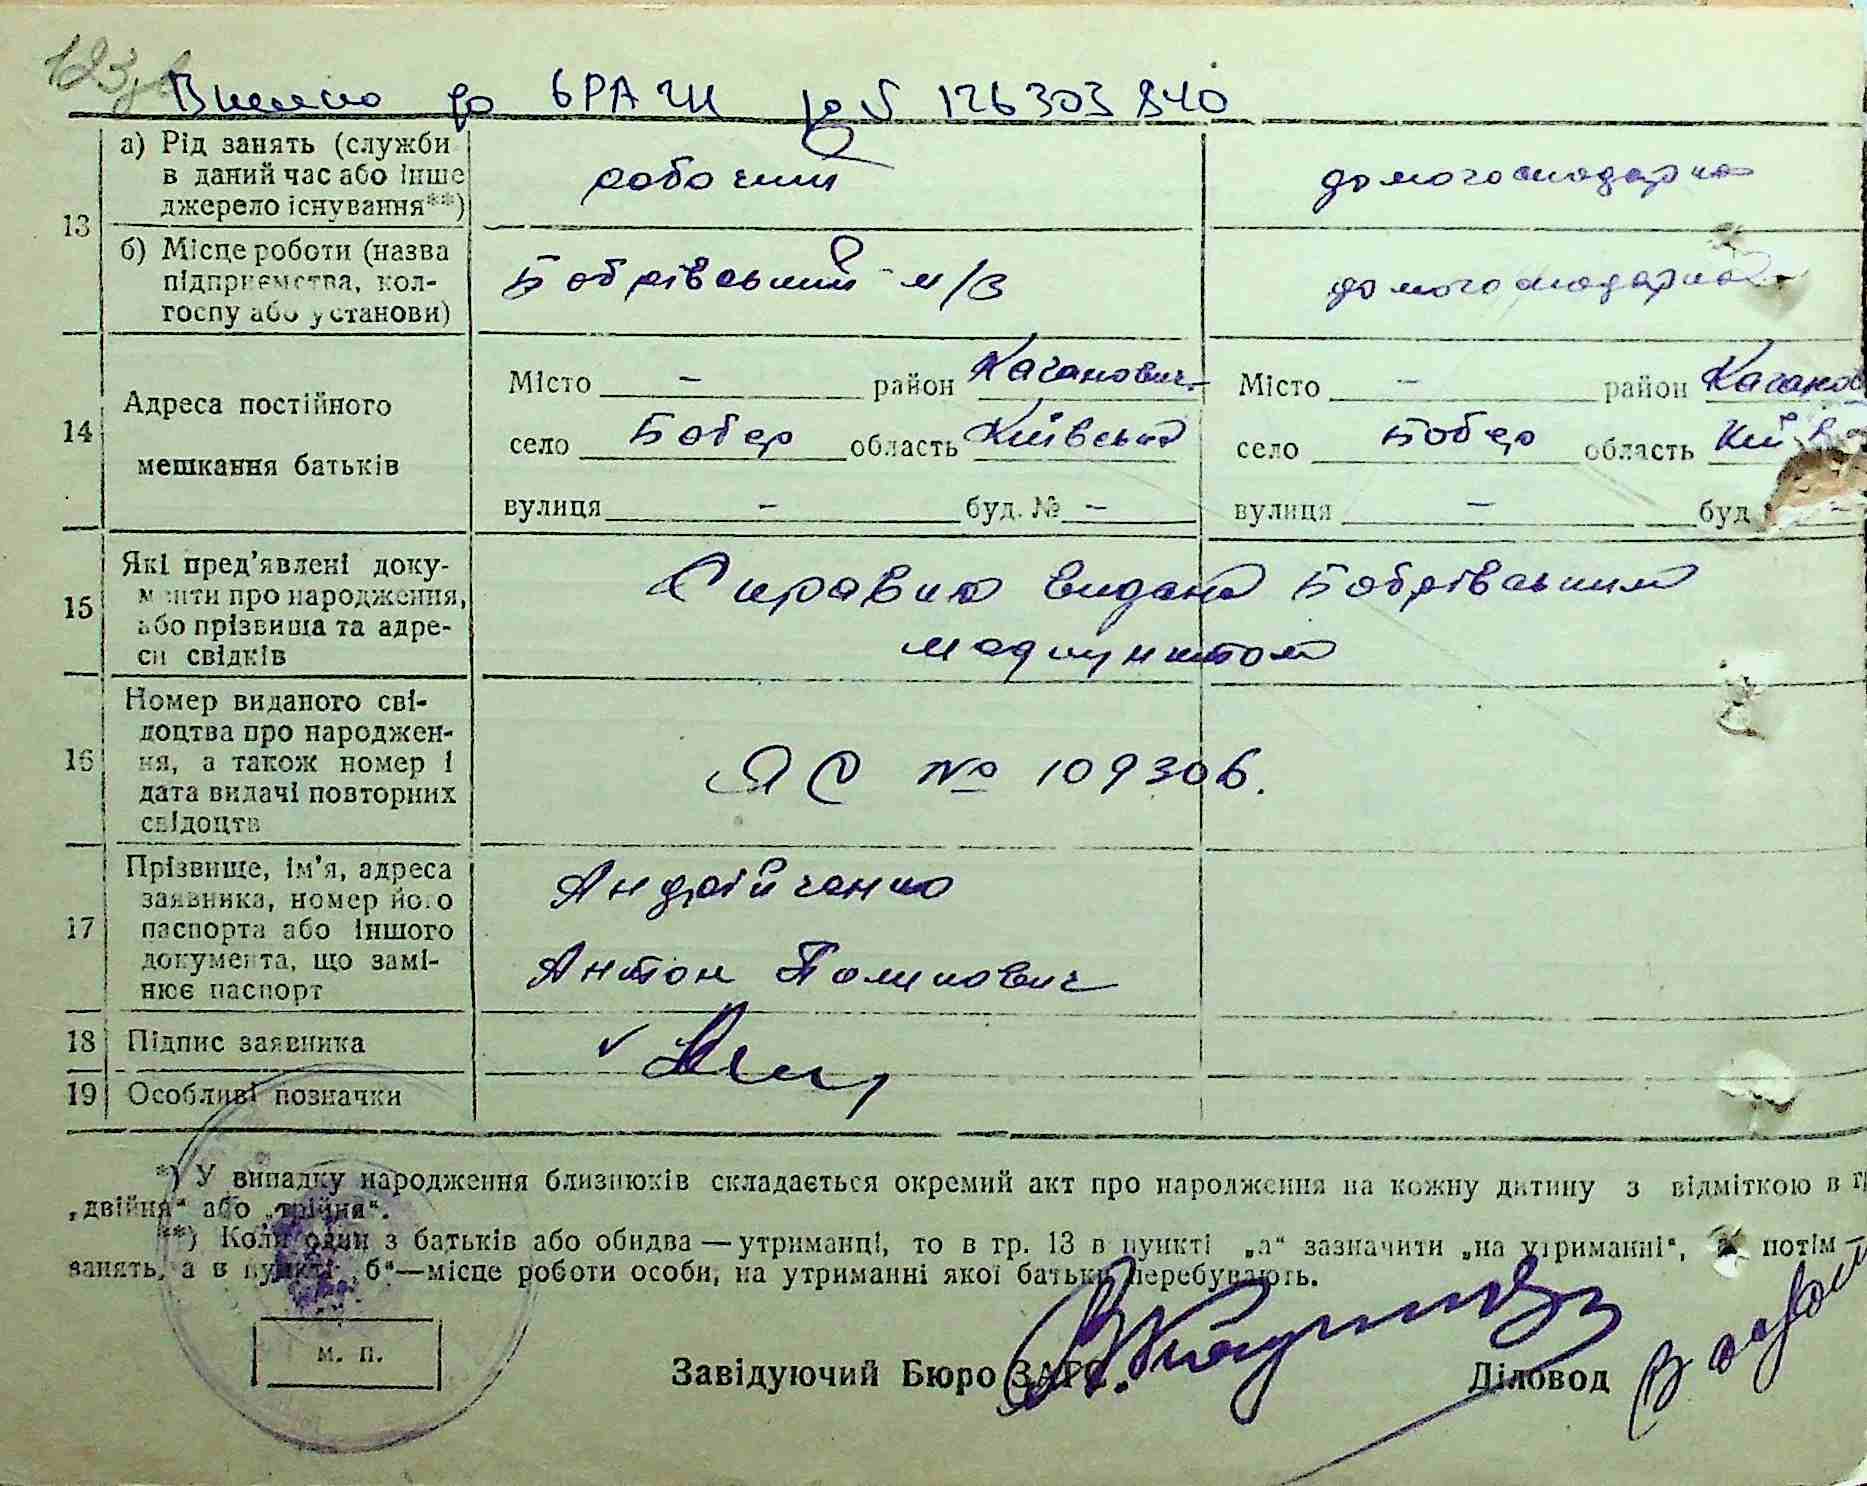 123 зв
Внесено до БРАЦИ за № 126303840
13
а) Рід занять (служби в даний час або інше джерело існування**)
робочий
домогосподарка
б) Місце роботи (назва підприємства, колгоспу або установи)
Бобрівський м/з
домогосподарка
14
Адреса постійного
мешкання батьків
Місто - район Каганович.
село Бобер область Київська
вулиця - буд. № -
Місто - район Каганов
село Бобер область Київ
вулиця - буд -
15
Які пред'явлені доку-
менти про народження,
або прізвища та адре-
си свідків
Справка видана Бобрівським
медпунктом
16
Номер виданого сві-
доцтва про народжен-
ня, а також номер і
дата видачі повторних
свідоцтв
ЯС № 109306.
17
Прізвище, ім'я, адреса
заявника, номер його
паспорта або іншого
документа, що замі-
нює паспорт
Андрійченко
Антон Пилипович
18 Підпис заявника
19 Особливі позначки
*) У випадку народження близнюків складається окремий акт про народження на кожну дитину з відміткою в г
„двійня“ або „трійня“.
**) Коли один з батьків або обидва — утриманці, то в гр. 13 в пункті „а“ зазначити „на утриманні“, а потім —
занять, а в пункті „б“—місце роботи особи, на утриманні якої батьки перебувають.
М. П.
Завідуючий Бюро ЗАГС
Діловод